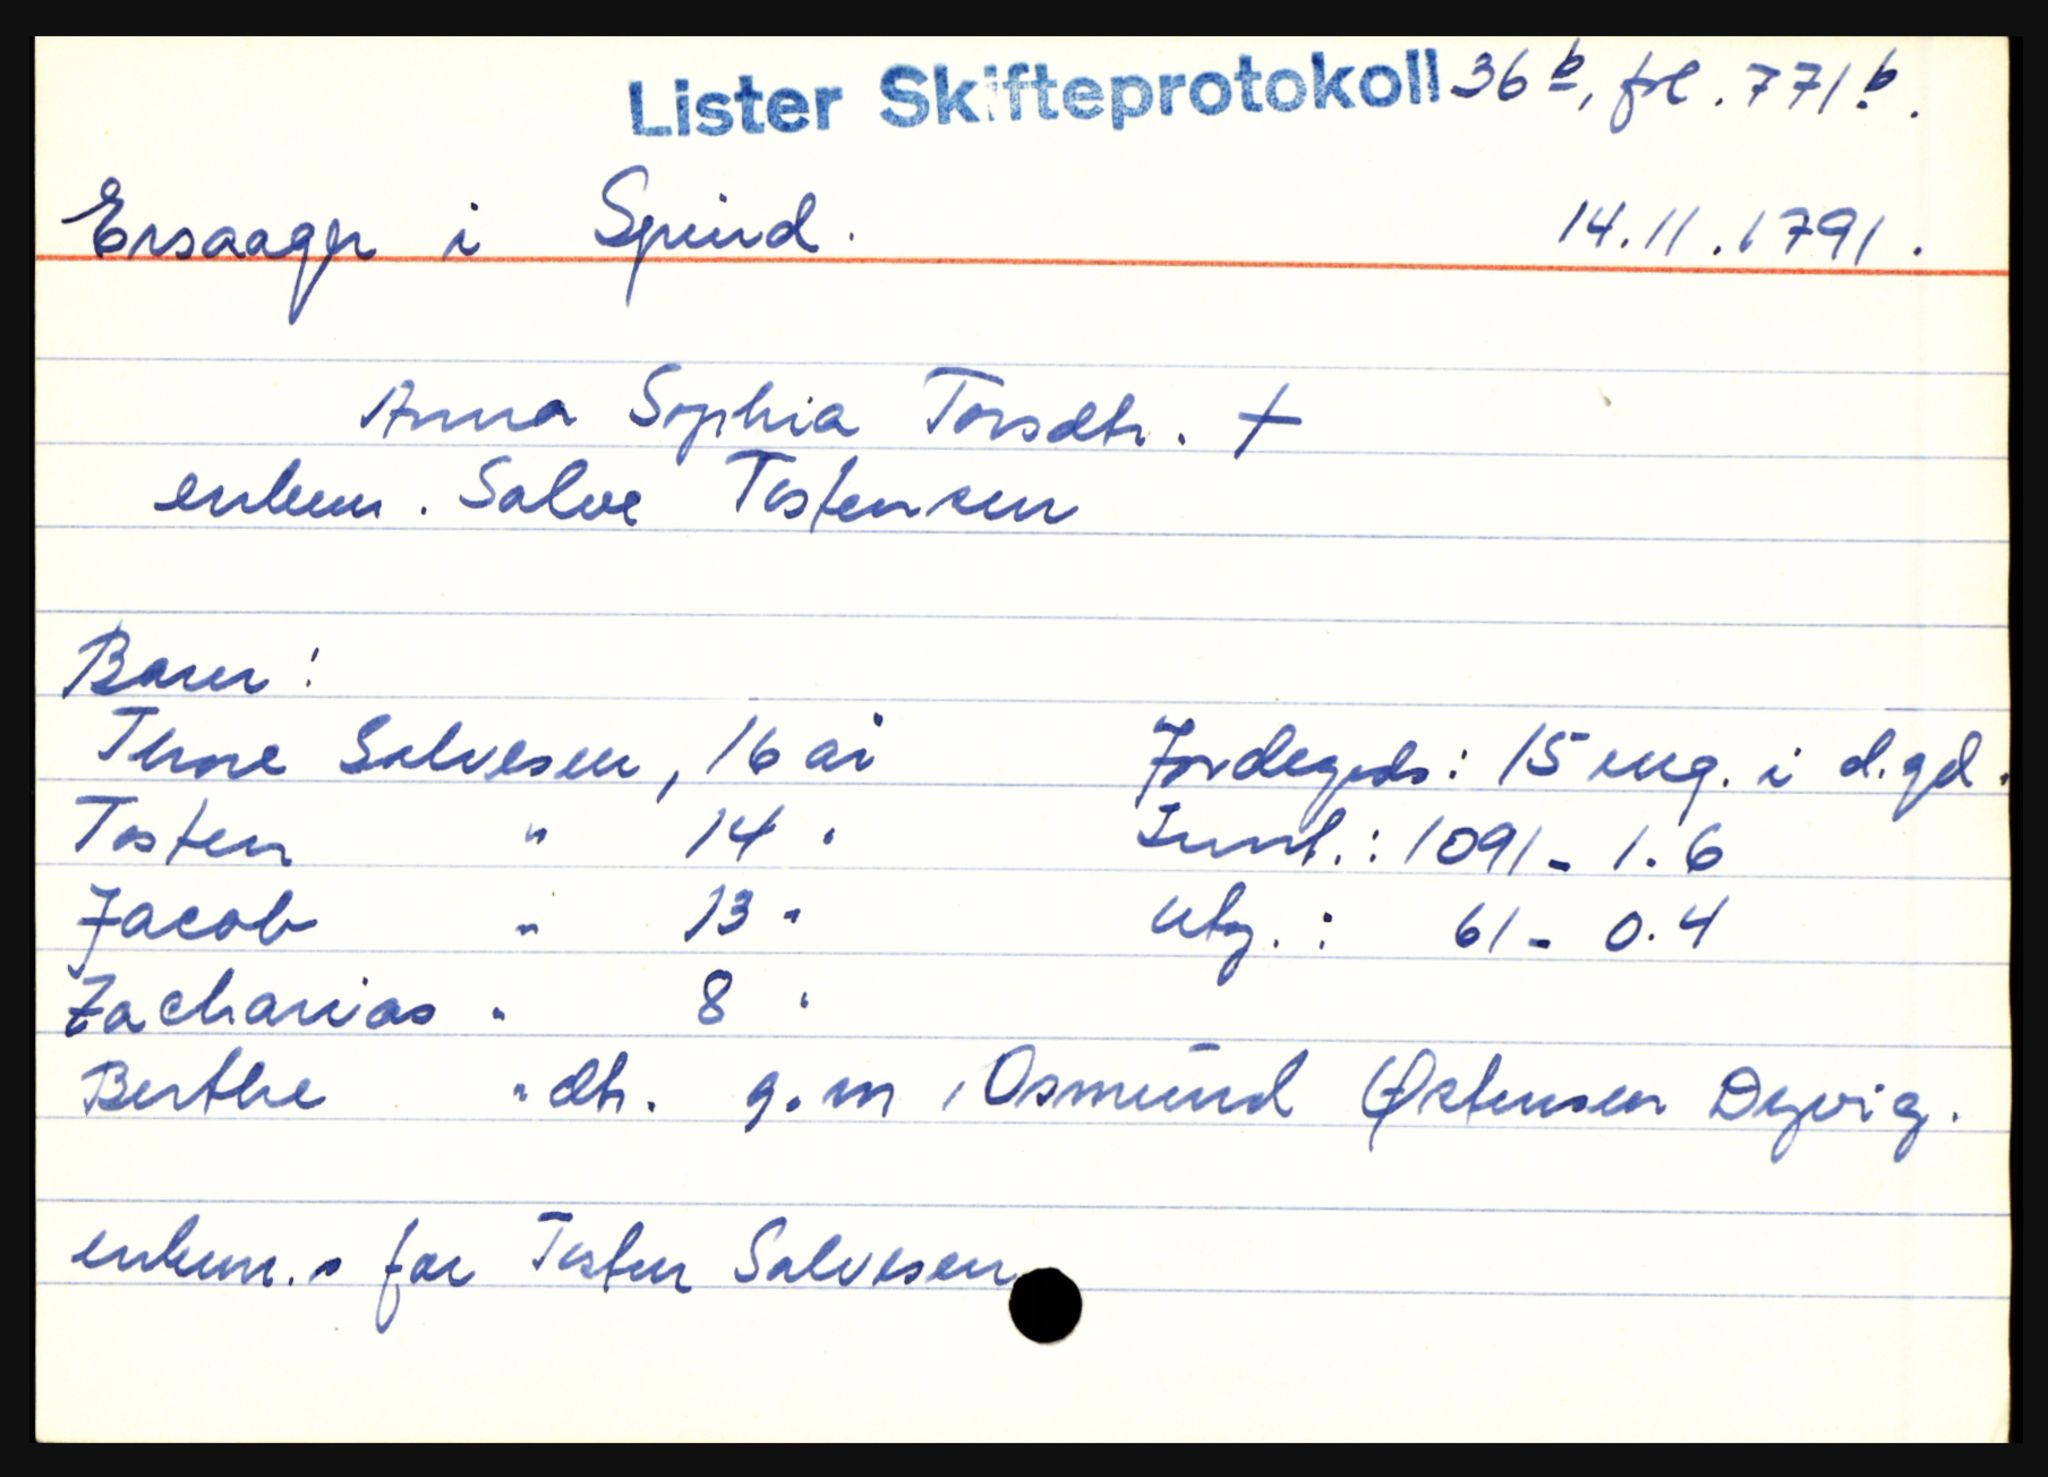 Lister Skifteprotokoll 36 b, fol. 771 b.
Ersaager i Spind. 14.11.1791.
Anna Sophia Torsdtr. +
enkem. Salve Tostensen
Barn:
Salvesen, 16 år Jordegods: 15 mg. i d. gd.
Tosten " 14 " Innt.: 1091 - 1. 6
Jacob " 13 " Utg.: 61 - 0. 4
Zacharias " 8 "
Berthe " dtr. g. m. Osmund Østensen Dyvig.
enkem. s far Tosten Salvesen